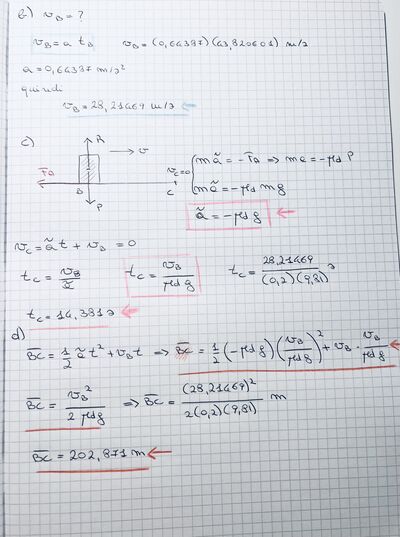 b) v_B = ?
v_B = a t_B   v_B = (0,64387)(43,820601) m/s
a = 0,64387 m/s²
quindi
v_B = 28,21469 m/s
c)
R
v
F_A
B
P
C
v_C=0
m ã = - F_A => m ã = - μd P
m ã = - μd m g
ã = - μd g
v_C = ã t + v_B = 0
t_C = v_B / ã   t_C = v_B / μd g   t_C = 28,21469 / (0,2)(9,81) s
t_C = 14,381 s
d)
BC = 1/2 ã t² + v_B t => BC = 1/2 (-μd g) (v_B / μd g)² + v_B · v_B / μd g
BC = v_B² / 2 μd g => BC = (28,21469)² / 2(0,2)(9,81) m
BC = 202,871 m